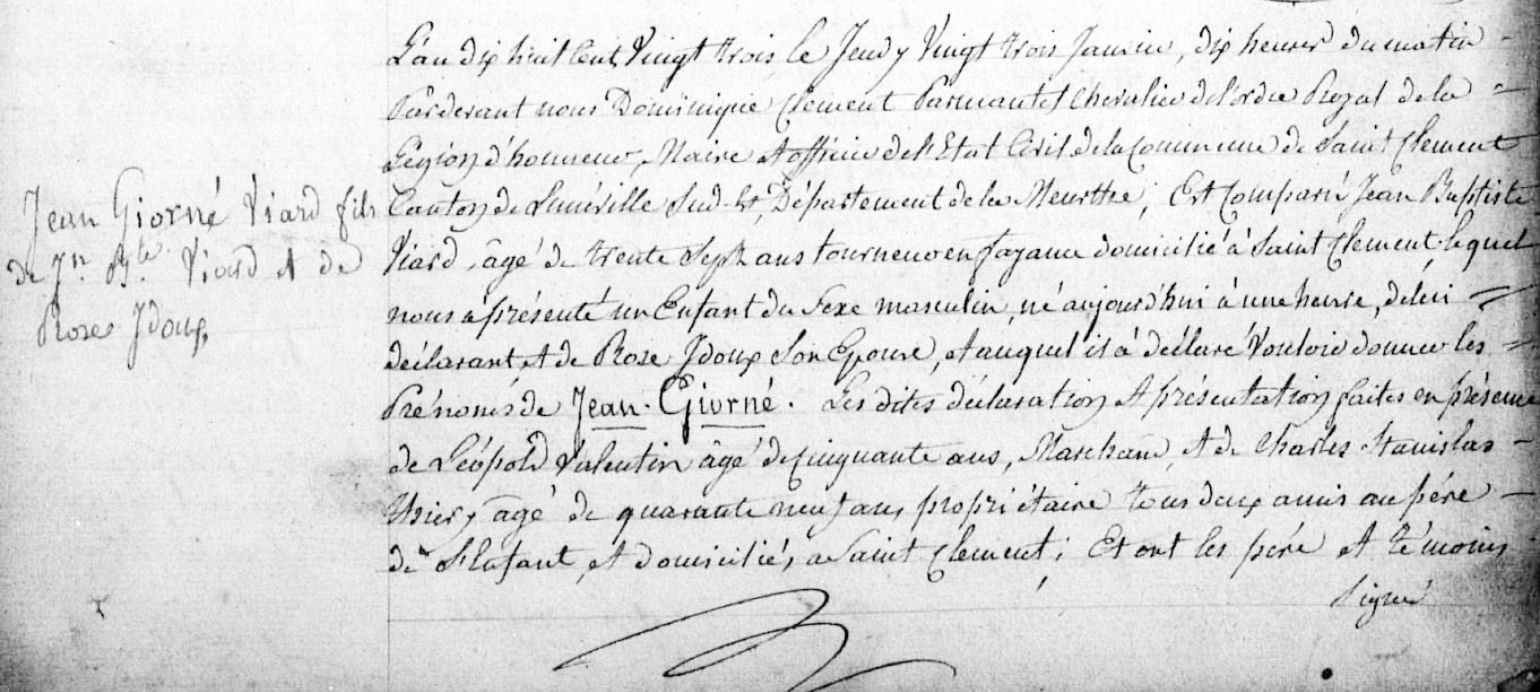 Jean Giorné Viard fils
de Jn. Bte. Viard et de
Rose Idoux,
L'an dix huit cent Vingt trois le Jeudy Vingt trois Janvier, dix heures du matin
Pardevant nous Dominique Clement Chevalier de l'ordre Royal de la
Légion d'honneur, Maire et officier de l'Etat Civil de la Commune de Saint Clement
Canton de Lunéville Sud-Est, Département de la Meurthe; Est Comparu Jean Baptiste
Viard, âgé de trente Sept ans tourneur en fayance domicilié à Saint Clement, lequel
nous à présenté un Enfant du Sexe masculin, né aujourd'hui à une heure, de lui =
déclarant, et de Rose Idoux Son Epouse, et auquel il à déclaré Vouloir donner les =
Prénoms de Jean-Giorné. Les dites déclaration et présentation faites en présence
de Léopold Valentin âgé de cinquante ans, Marchand, et de Charles Stanislas -
âgé de quarante neuf ans, propriétaire tous deux amis au pére -
de l'Enfant, et domiciliés a Saint Clement; Et ont les pére et témoins
Signé